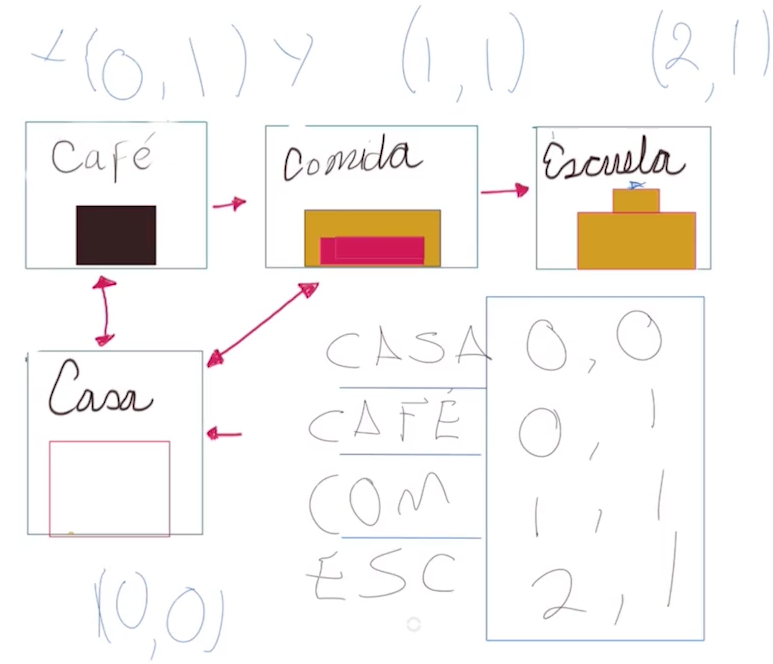 x (0,1) y (1,1) (2,1)
Café Comida Escuela
Casa
CASA 0,0
CAFÉ 0,1
COM 1,1
ESC 2,1
(0,0)